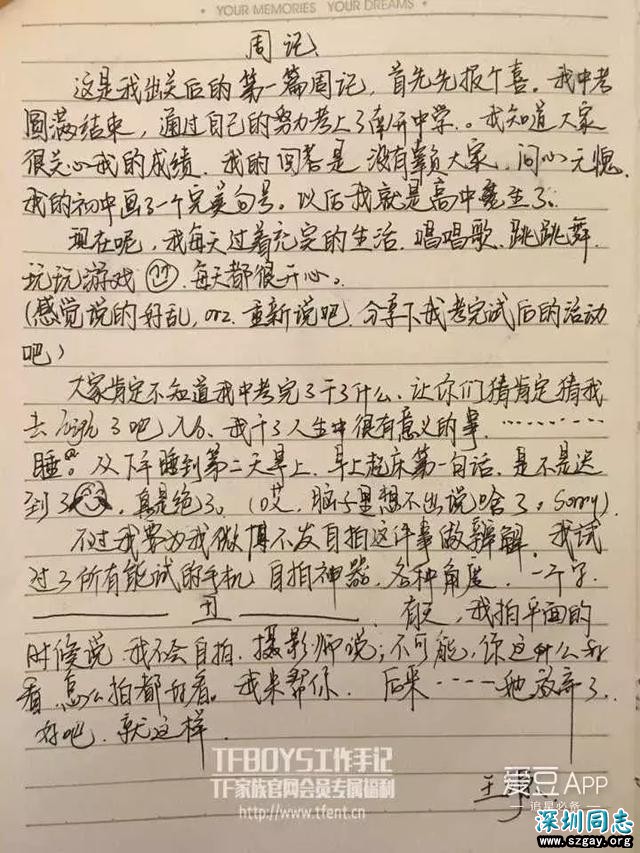 YOUR MEMORIES YOUR DREAMS
周记
这是我出关后的第一篇周记，首先先报个喜。我中考
圆满结束，通过自己的努力考上了南开中学。我知道大家
很关心我的成绩，我的回答是没有辜负大家，问心无愧，
我的初中画了一个完美句号。以后我就是高中生了。
现在呢，我每天过着充实的生活，唱唱歌，跳跳舞，
玩玩游戏，每天都很开心。
(感觉说的好乱，orz，重新说吧，分享下我考完试后的活动
吧)
大家肯定不知道我中考完了干了什么，让你们猜肯定猜我
去 了吧，我干了人生中很有意义的事………
睡。从下午睡到第二天早上，早上起床第一句话，是不是迟
到了，真是绝了。(哎，脑子里想不出说啥了。Sorry)
不过我要为我微博不发自拍这件事做辩解，我试
过了所有能试的手机，自拍神器，各种角度，一个字，
—— 丑 ——，有次，我拍平面的
时候说，我不会自拍，摄影师说；不可能，你这种么好
看，怎么拍都好看。我来帮你，后来……她放弃了，
好吧，就这样
TFBOYS工作手记
TF家族官网会员专属福利
http://www.tfent.cn
爱豆APP
追星必备
深圳同志
www.szgay.org